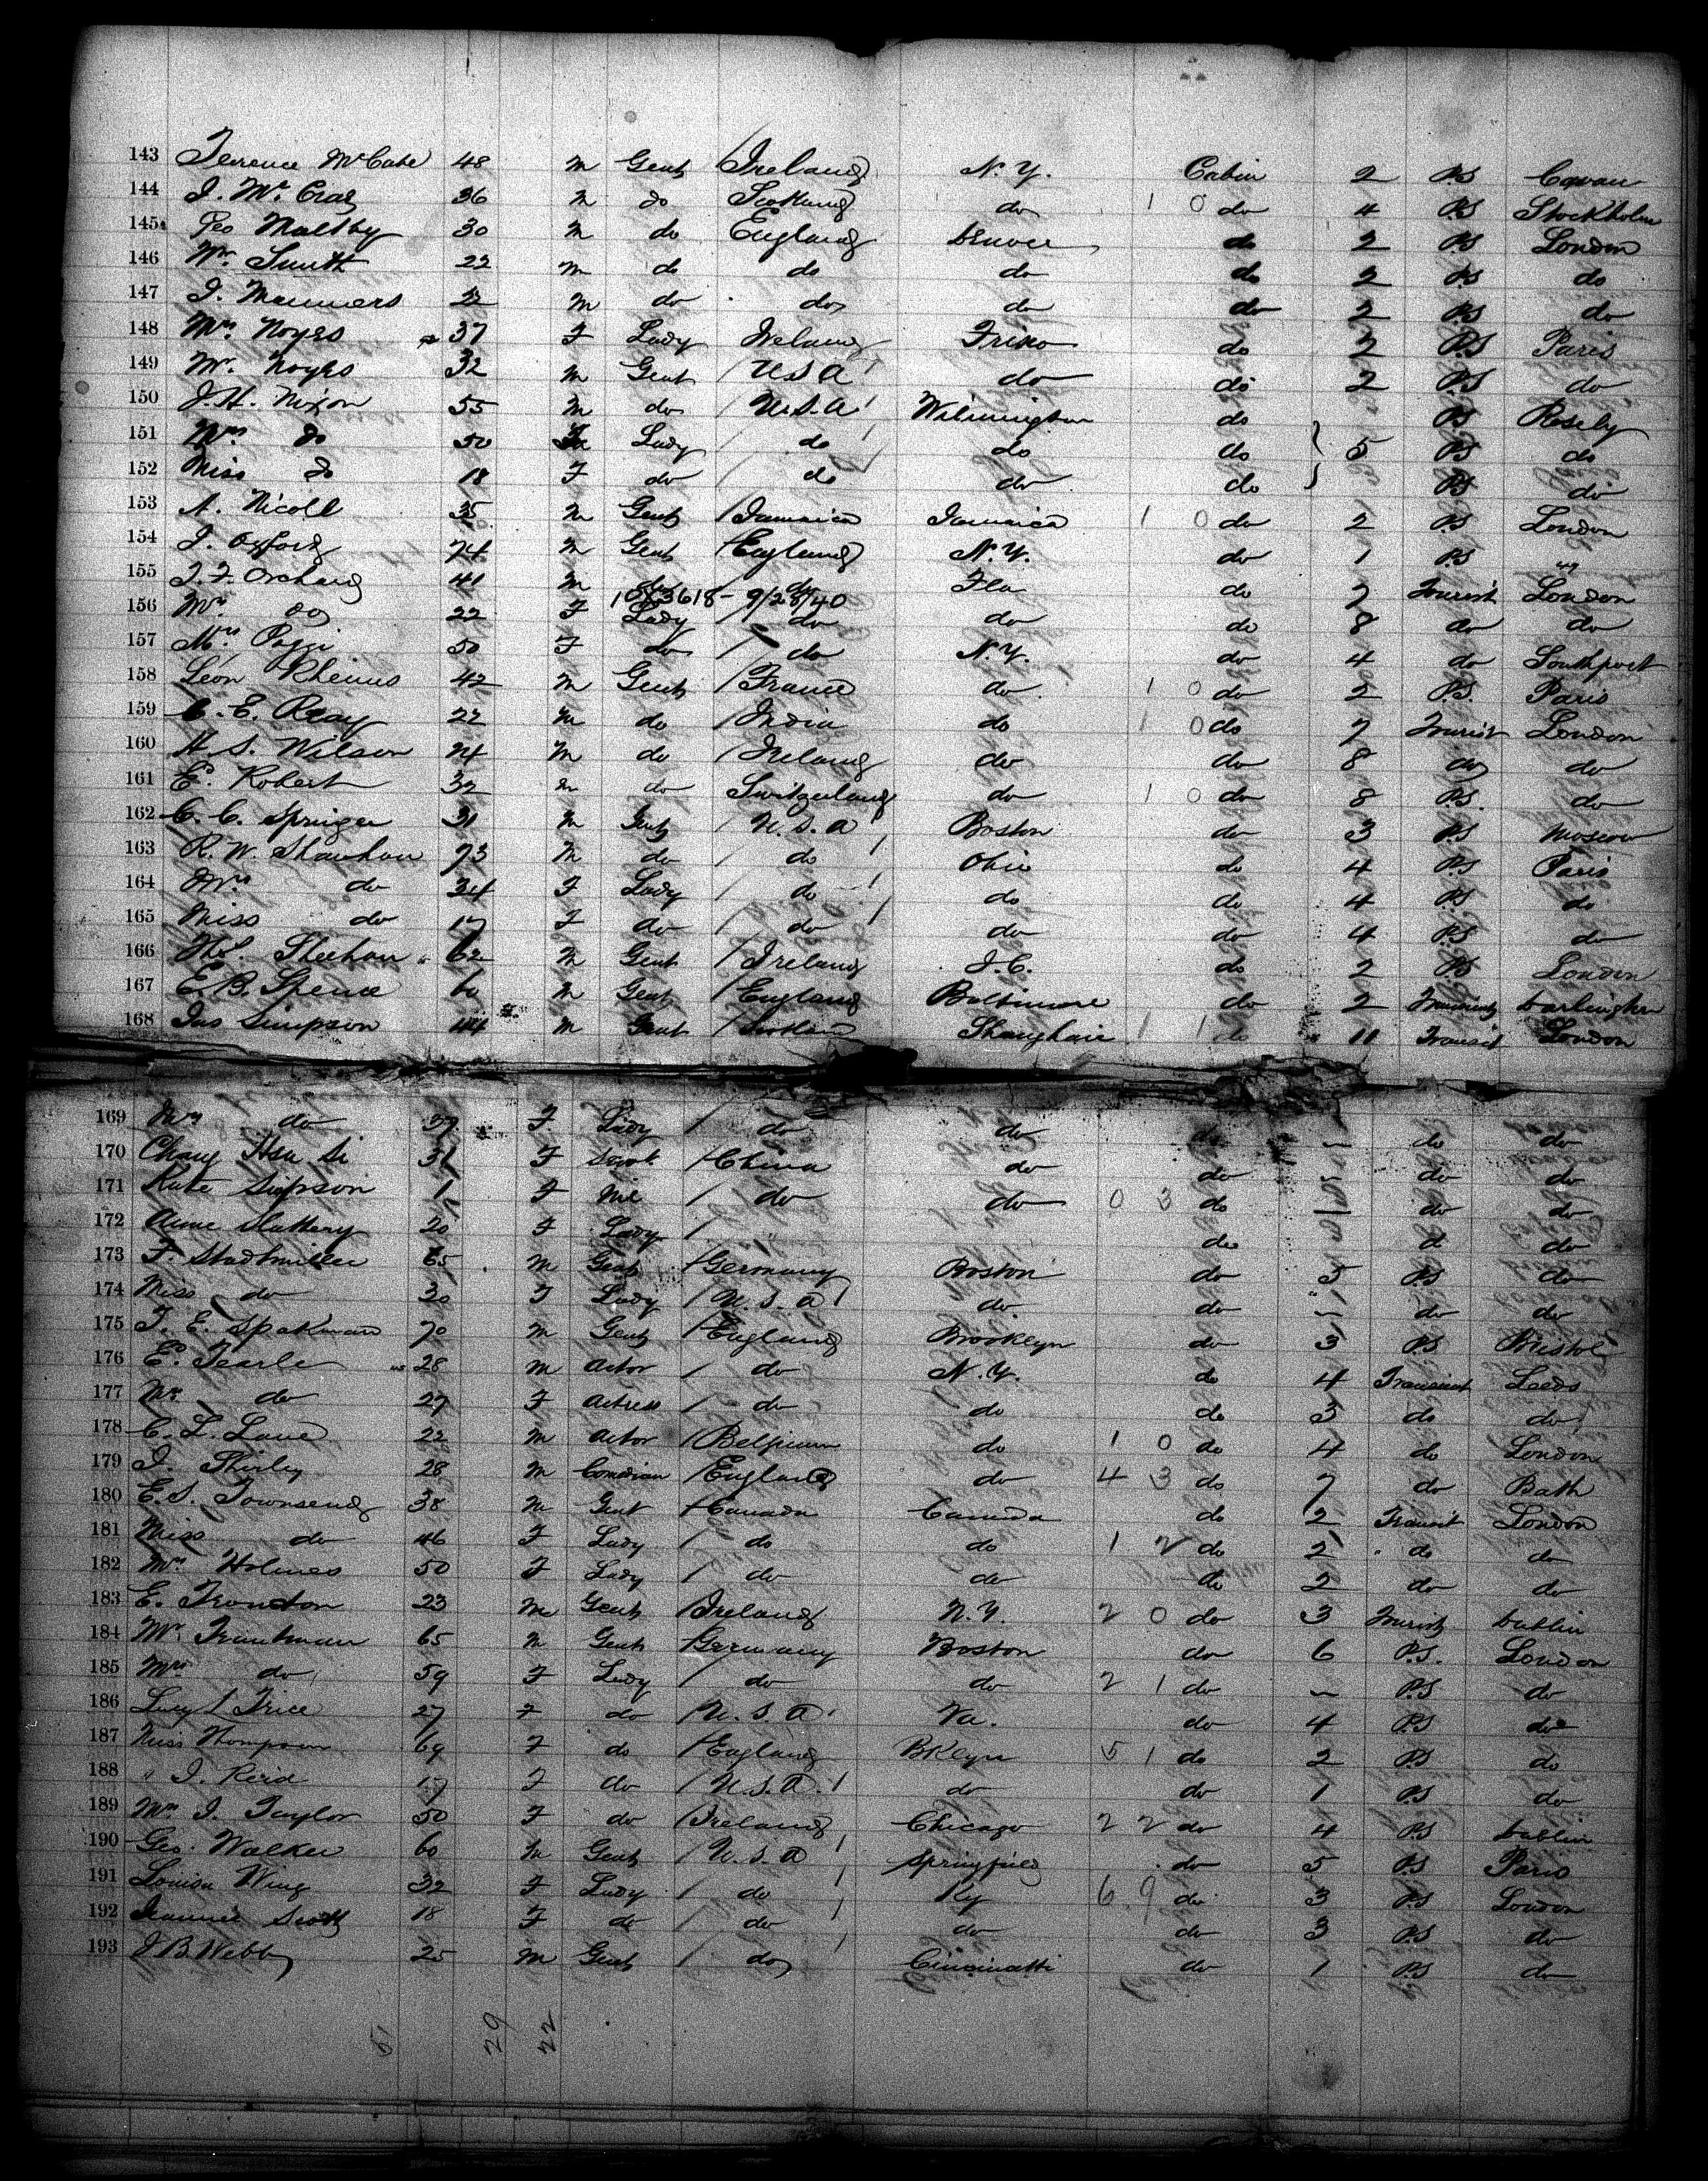 143 Terence McCabe 48 M Gent Ireland N.Y. Cabin 2 P.S Cavan
144 J. McCray 36 M do Scotland do 1 0 do 4 P.S Stockholm
145 Geo Maltby 30 M do England Denver do 2 P.S London
146 Wm. Smith 22 M do do do do 2 P.S do
147 J. Manners 22 M do do do do 2 P.S do
148 Mrs Noyes 37 F Lady Ireland Frisco do 2 P.S Paris
149 Mr. Noyes 32 M Gent U.S.A do do 2 P.S do
150 J.H. Nixon 55 M do U.S.A Wilmington do P.S
151 Mrs do 50 F Lady do do do 5 P.S do
152 Miss do 18 F do do do do P.S do
153 A. Nicoll 35 M Gent Jamaica Jamaica 1 0 do 2 P.S London
154 J. Oxford 74 M Gent England N.Y. do 1 P.S
155 J.F. Orchard 41 M do do Fla do 7 Tourist London
1083618 - 9/28/40
156 Mrs do 22 F Lady do do do 8 do do
157 Mrs Pozzi 50 F do do N.Y. do 4 do Southport
158 Léon Rheims 42 M Gent France do 1 0 do 2 P.S. Paris
159 C.E. Reay 22 M do India do 1 0 do 7 Tourist London
160 H.S. Wilson 24 M do Ireland do do 8 do do
161 E. Robert 32 M do Switzerland do 1 0 do 8 P.S. do
162 C.C. Springer 31 M Gent U.S.A Boston do 3 P.S Moscow
163 R.W. Shawhan 73 M do do Ohio do 4 P.S Paris
164 Mrs do 34 F Lady do do do 4 P.S do
165 Miss do 17 F do do do do 4 P.S do
166 Thos. Sheehan 62 M Gent Ireland J.C. do 2 P.S London
167 E.B. Spence 60 M Gent England Baltimore do 2 Darlington
168 Jas Simpson 44 M Gent Scotland Shanghaie 1 1 do 11 Transit London
169 Mrs do 37 F Lady do do do do do
170 Chang Hsu Si 31 F Servt. China do do do do
171 Kate Simpson 1 F Nil do do 0 3 do do do
172 Anne Slattery 20 F Lady do do
173 F. Stadtmiller 65 M Gent Germany Boston do 5 P.S do
174 Miss do 30 F Lady U.S.A do do do do
175 T.E. Spakman 70 M Gent England Brooklyn do 3 P.S Bristol
176 E. Tearle 28 M Actor do N.Y. do 4 Transient Leeds
177 Mrs do 27 F Actress do do do 3 do do
178 C.L. Lane 22 M Actor Belgium do 1 0 do 4 do London
179 J. Shirley 28 M Comedian England do 4 3 do 7 do Bath
180 E.S. Townsend 38 M Gent Canada Canada do 2 Transit London
181 Miss do 46 F Lady do do 1 2 do 2 do do
182 Mrs Holmes 50 F Lady do do do 2 do do
183 E. Tronston 23 M Gent Ireland N.Y. 2 0 do 3 Tourist Dublin
184 Mr Trautman 65 M Gent Germany Boston do 6 P.S. London
185 Mrs do 59 F Lady do do 2 1 do P.S do
186 Lucy L Trice 27 F do U.S.A Va. do 4 P.S do
187 Miss Thompson 69 F do England BKlyn 5 1 do 2 P.S do
188 " J. Reid 17 F do U.S.A. do do 1 P.S do
189 Mrs J. Taylor 50 F do Ireland Chicago 2 2 do 4 P.S Dublin
190 Geo. Walker 60 M Gent U.S.A Springfield do 5 P.S Paris
191 Louisa Wing 32 F Lady do Ky 6 9 do 3 P.S London
192 Jeannie Scott 18 F do do do do 3 P.S do
193 J B. Webb 25 M Gent do Cincinatti do 1 P.S do
51 29 22